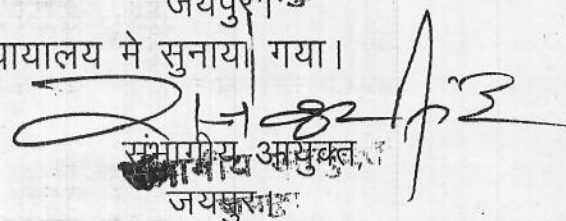 जयपुर।
यायालय मे सुनाया गया।
संभागीय आयुक्त,
जयपुर।